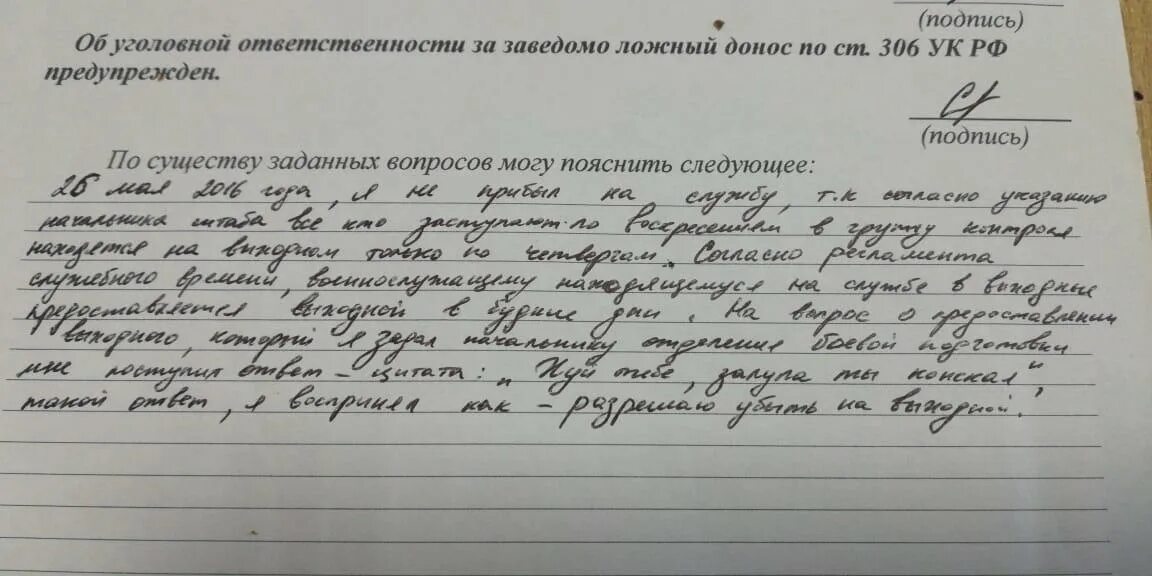 (подпись)
Об уголовной ответственности за заведомо ложный донос по ст. 306 УК РФ
предупрежден.
(подпись)
По существу заданных вопросов могу пояснить следующее:
26 мая 2016 года, я не прибыл на службу, т.к согласно указанию
начальника штаба все кто заступают по воскресеньям в группу контроля
находятся на выходном только по четвергам. Согласно регламента
служебного времени, военнослужащему находящемуся на службе в выходные
предоставляется выходной в будние дни. На вопрос о предоставлении
выходного, который я задал начальнику отделения боевой подготовки
мне поступил ответ – цитата: „Хуй тебе, залупа ты конская",
такой ответ, я воспринял как – разрешаю убыть на выходной.